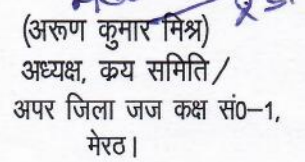 (अरूण कुमार मिश्र)
अध्यक्ष, कय समिति /
अपर जिला जज कक्ष सं0–1,
मेरठ।